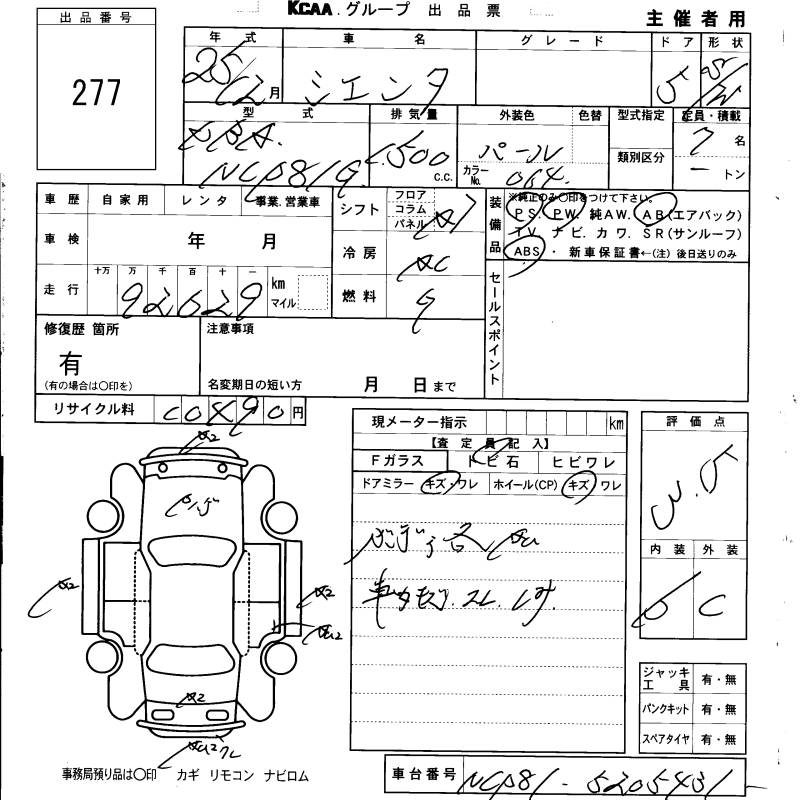 KCAA グループ 出品票
主催者用
出品番号
277
年式 車名 グレード ドア 形状
25/12月 シエンタ 5 S/W
型式 排気量 外装色 色替 型式指定 定員・積載
DBA- NCP81G 1500 c.c. パール 類別区分 7 名
カラーNo. 064 - トン
車歴 自家用 レンタ 事業.営業車
車検 年 月
走行 十万 万 千 百 十 一 km マイル
92629
シフト フロア コラム パネル AT
冷房 AC
燃料 G
装備品
※純正のみ〇印をつけて下さい。
PS. PW. 純AW. AB(エアバック)
TV. ナビ. カワ. SR(サンルーフ)
ABS・ 新車保証書←(注) 後日送りのみ
セールスポイント
修復歴 箇所
有
(有の場合は〇印を)
注意事項
名変期日の短い方 月 日まで
リサイクル料 C0490円
現メーター指示 km
【査定員記入】
Fガラス トビ石 ヒビワレ
ドアミラー キズ・ワレ ホイール(CP) キズ ワレ
評価点
3.5
内装 外装
C
A2
A2
A2
A2
ジャッキ工具 有・無
パンクキット 有・無
スペアタイヤ 有・無
事務局預り品は〇印 カギ リモコン ナビロム
車台番号 NCP81-5205431